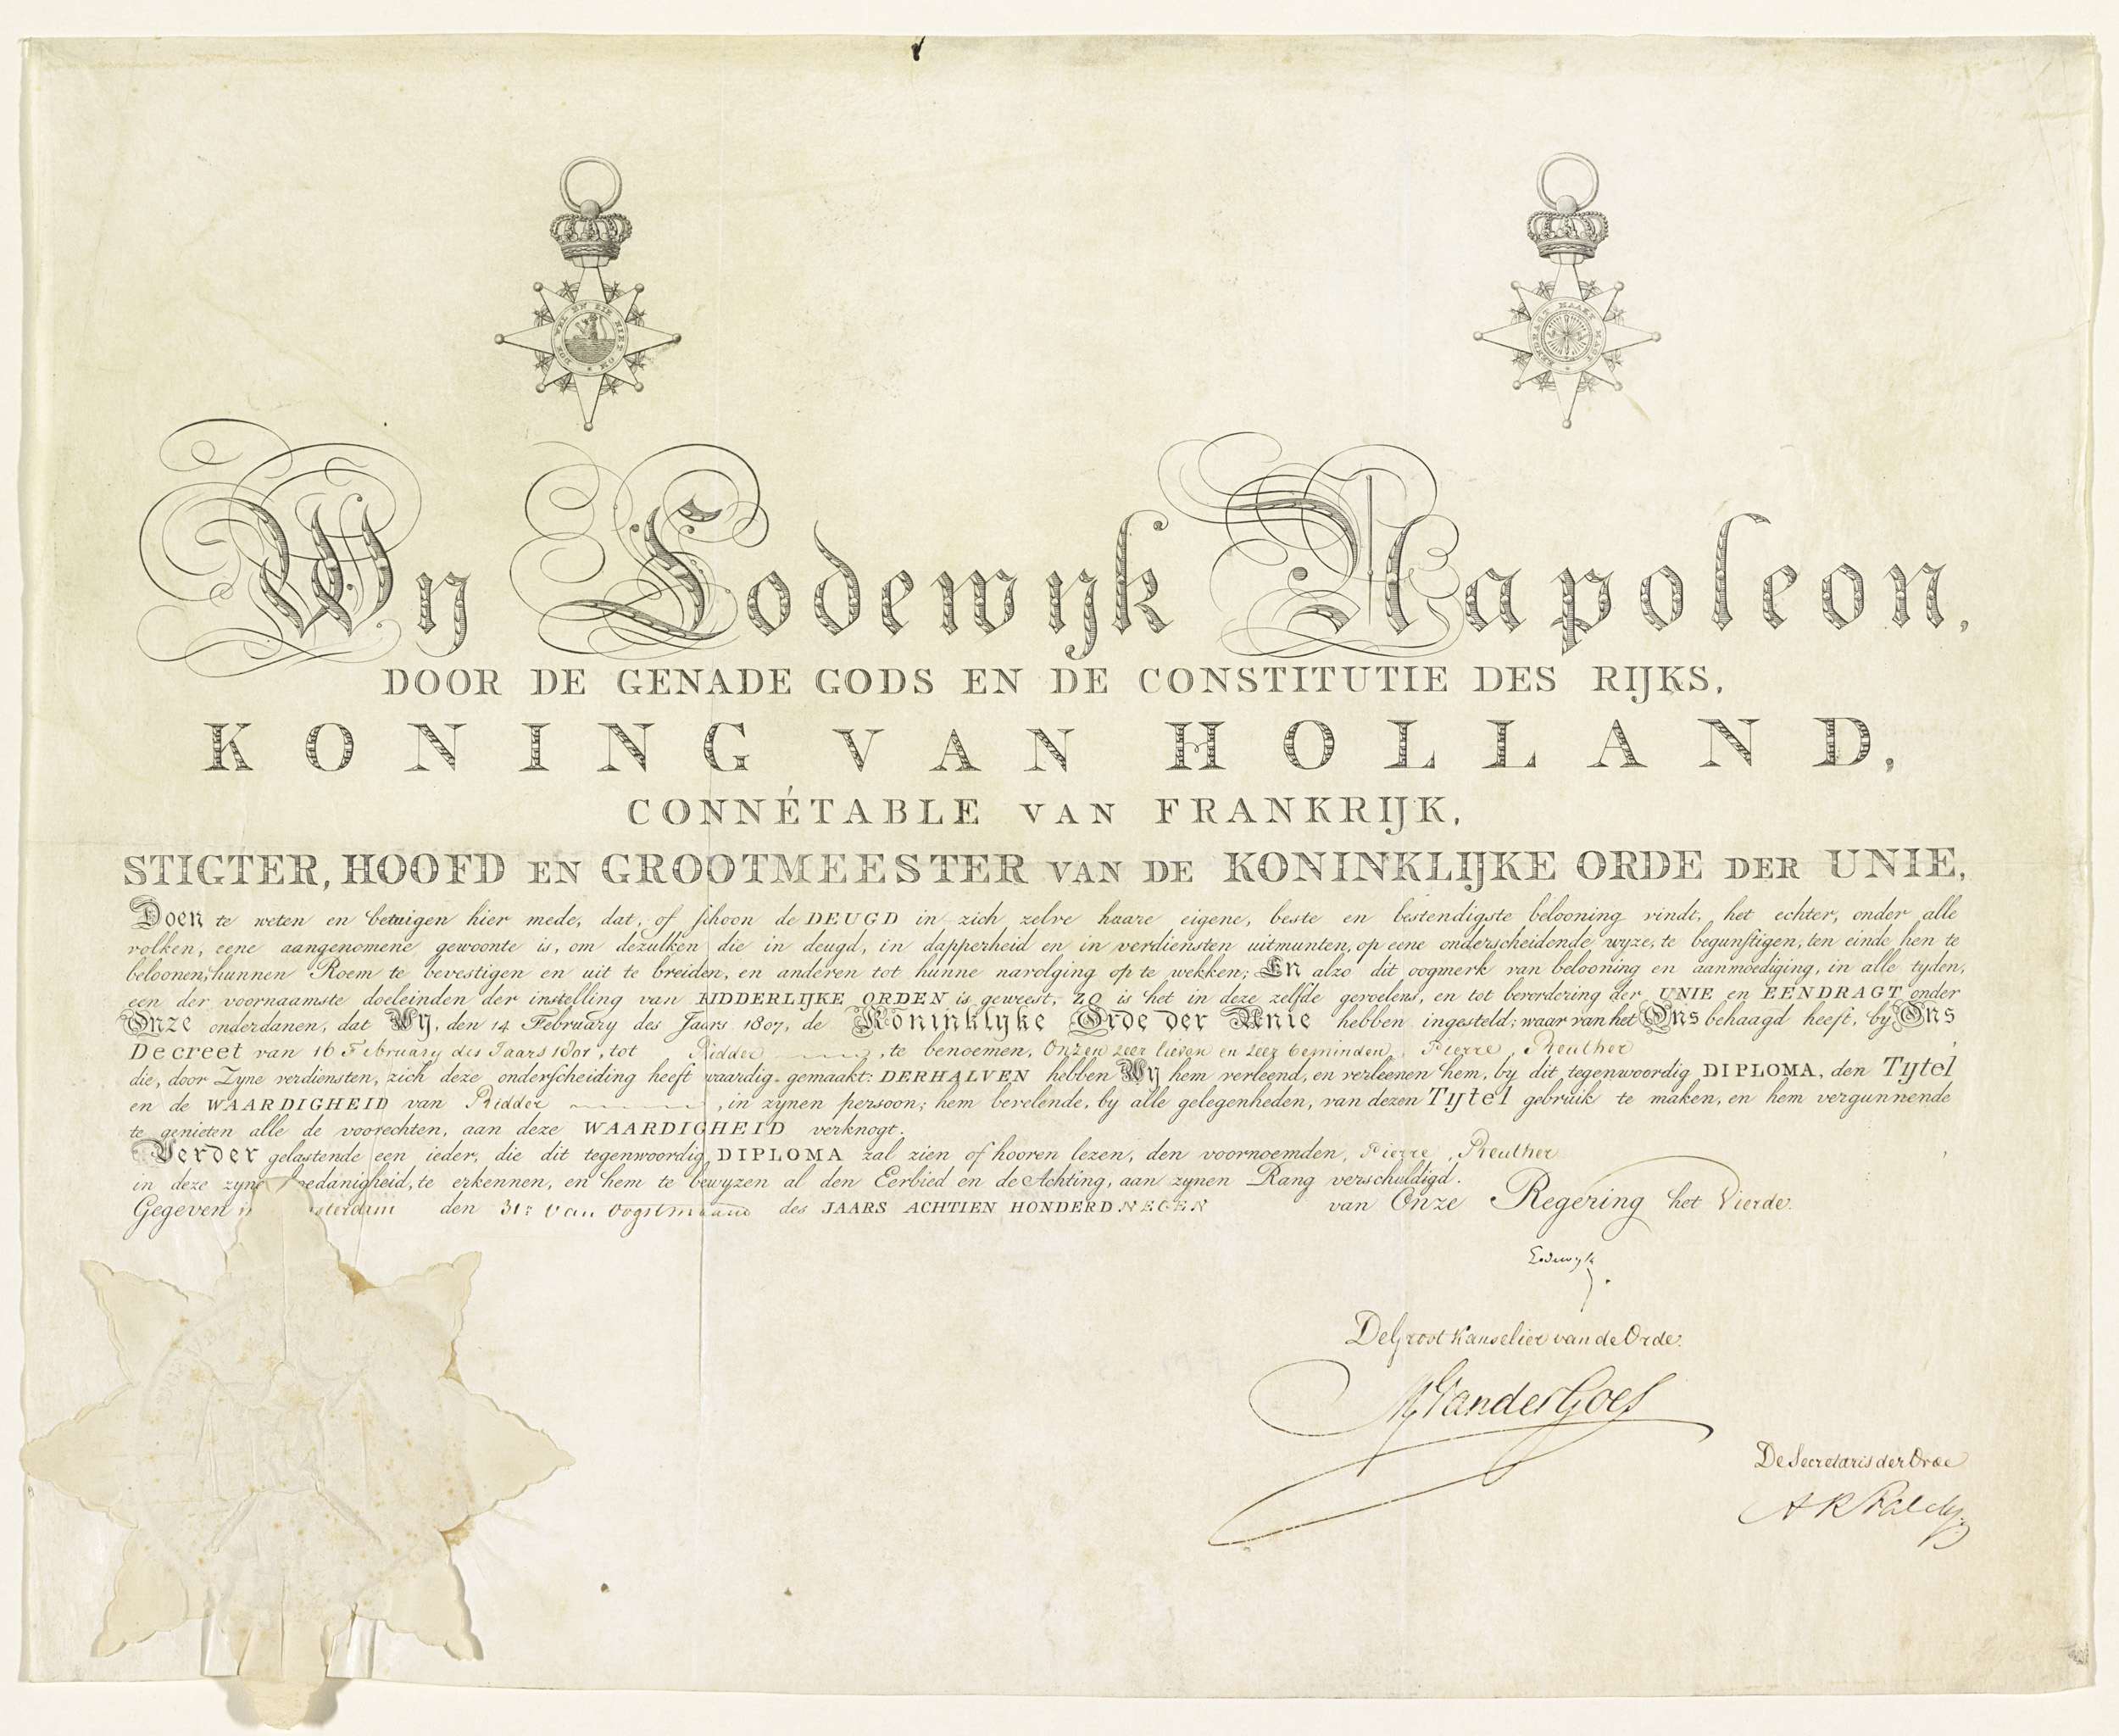 DOE WEL EN ZIE NIET OM
EENDRAGT MAAKT MAGT
Wij Lodewijk Napoleon,
DOOR DE GENADE GODS EN DE CONSTITUTIE DES RIJKS,
KONING VAN HOLLAND,
CONNÉTABLE VAN FRANKRIJK,
STIGTER, HOOFD EN GROOTMEESTER VAN DE KONINKLIJKE ORDE DER UNIE,
Doen te weten en betuigen hier mede, dat, of schoon de DEUGD in zich zelve haare eigene, beste en bestendigste belooning vindt, het echter, onder alle
volken, eene aangenomene gewoonte is, om dezulken die in deugd, in dapperheid en in verdiensten uitmunten, op eene onderscheidende wyze, te begunstigen, ten einde hen te
beloonen, hunnen Roem te bevestigen en uit te breiden, en anderen tot hunne navolging op te wekken; En alzo dit oogmerk van belooning en aanmoediging, in alle tyden,
een der voornaamste doeleinden der instelling van RIDDERLIJKE ORDEN is geweest, zo is het in deze zelfde gevoelens, en tot bevordering der UNIE en EENDRAGT onder
Onze onderdanen, dat Wij, den 14 February des Jaars 1807, de Koninklyke Orde der Unie hebben ingesteld; waar van het Ons behaagd heeft, by Ons
Decreet van 16 February des Jaars 1807, tot Ridder, te benoemen, Onzen zeer lieven en zeer beminden, Pierre, Reuther
die, door Zyne verdiensten, zich deze onderscheiding heeft waardig gemaakt: DERHALVEN hebben Wij hem verleend, en verleenen hem, by dit tegenwoordig DIPLOMA, den Tijtel
en de WAARDIGHEID van Ridder, in zynen persoon; hem bevelende, by alle gelegenheden, van dezen Tijtel gebruik te maken, en hem vergunnende
te genieten alle de voorechten, aan deze WAARDIGHEID verknogt.
Verder gelastende een ieder, die dit tegenwoordig DIPLOMA zal zien of hooren lezen, den voornoemden, Pierre, Reuther
in deze zyne hoedanigheid, te erkennen, en hem te bewyzen al den Eerbied en de Achting, aan zynen Rang verschuldigd.
Gegeven den 31e van Oogstmaand des JAARS ACHTIEN HONDERD NEGEN van Onze Regering het Vierde.
Lodewijk
De Groot Kanselier van de Orde.
M Van der Goes
De Secretaris der Orde